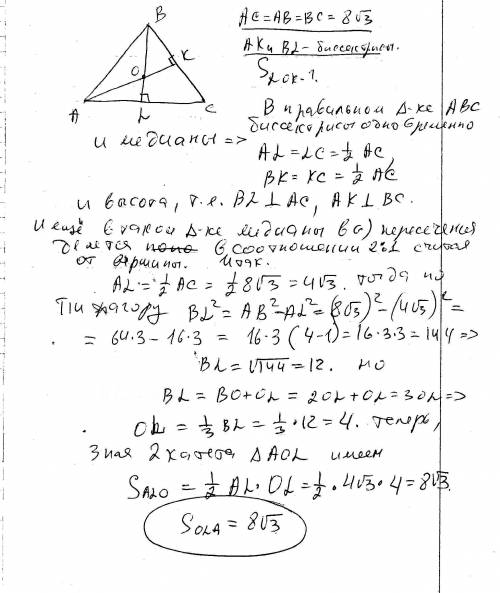 B
AC=AB=BC=8√3
AK и BL - биссектрисы.
S LOK-?
K
O
A
L
C
В правильном Δ-ке ABC
биссектрисы одновременно
и медианы =>
AL=LC=½ AC,
BK=KC=½ AC
и высота, т.е. BL⊥AC, AK⊥BC.
И ещё в таком Δ-ке медианы в (·) пересечения
делятся в соотношении 2:1 считая
от вершины. Итак.
AL=½ AC=½ 8√3=4√3. тогда по
Пифагору BL²=AB²-AL²=(8√3)²-(4√3)²=
=64.3-16.3=16.3(4-1)=16.3.3=144=>
BL=√144=12. но
BL=BO+OL=2OL+OL=3OL=>
OL=⅓ BL=⅓·12=4. теперь,
Зная 2 катета ΔAOL имеем
S ALO=½ AL·OL=½·4√3·4=8√3.
S OLA=8√3